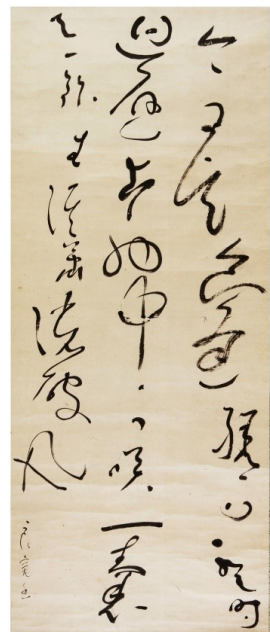 今日乞食逢驟雨暫時
廻避古祠中可咲一嚢
与一鉢生涯蕭洒破家風
良寛書